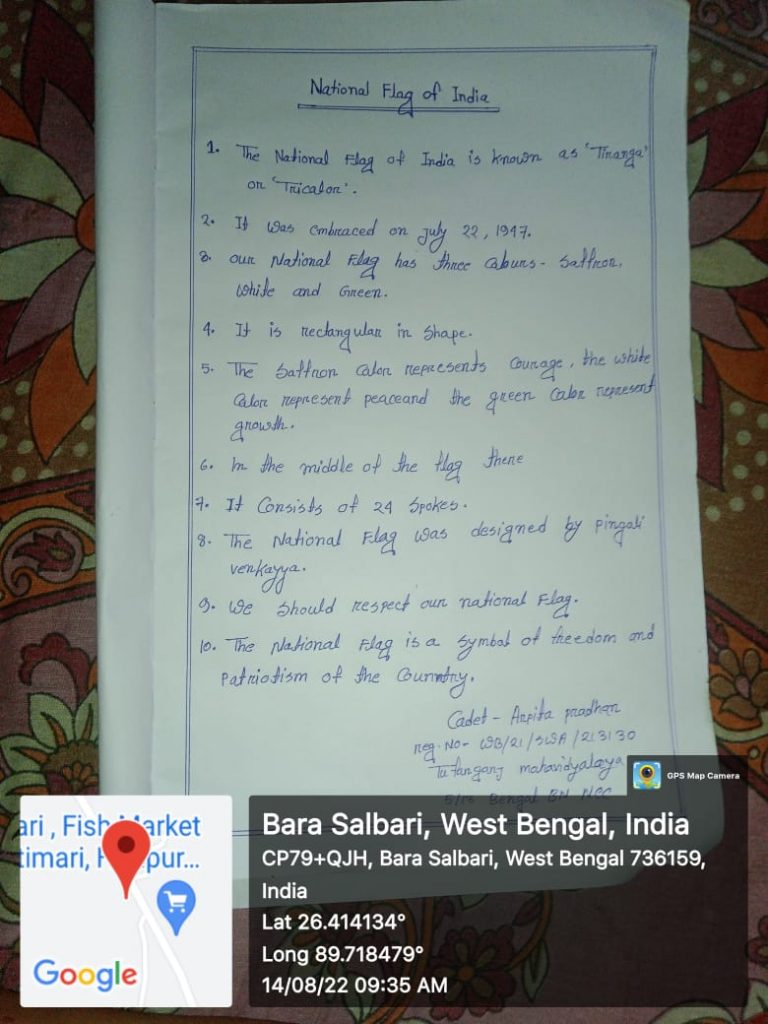 National Flag of India
1. The National Flag of India is known as 'Tiranga'
or 'Tricolor'.
2. It was embraced on July 22, 1947.
3. our National Flag has three colours - Saffron,
White and Green.
4. It is rectangular in shape.
5. The Saffron color represents courage, the white
color represent peaceand the green color represent
growth.
6. In the middle of the flag there
7. It Consists of 24 spokes.
8. The National Flag was designed by pingali
venkayya.
9. We should respect our national Flag.
10. The National Flag is a symbol of freedom and
patriotism of the Counntry.
Cadet - Arpita pradhan
reg. No- WB/21/SWA/213130
Tufanganj mahavidyalaya
5/15 Bengal BN NCC
GPS Map Camera
ari , Fish Market
timari,
Google
Bara Salbari, West Bengal, India
CP79+QJH, Bara Salbari, West Bengal 736159,
India
Lat 26.414134°
Long 89.718479°
14/08/22 09:35 AM